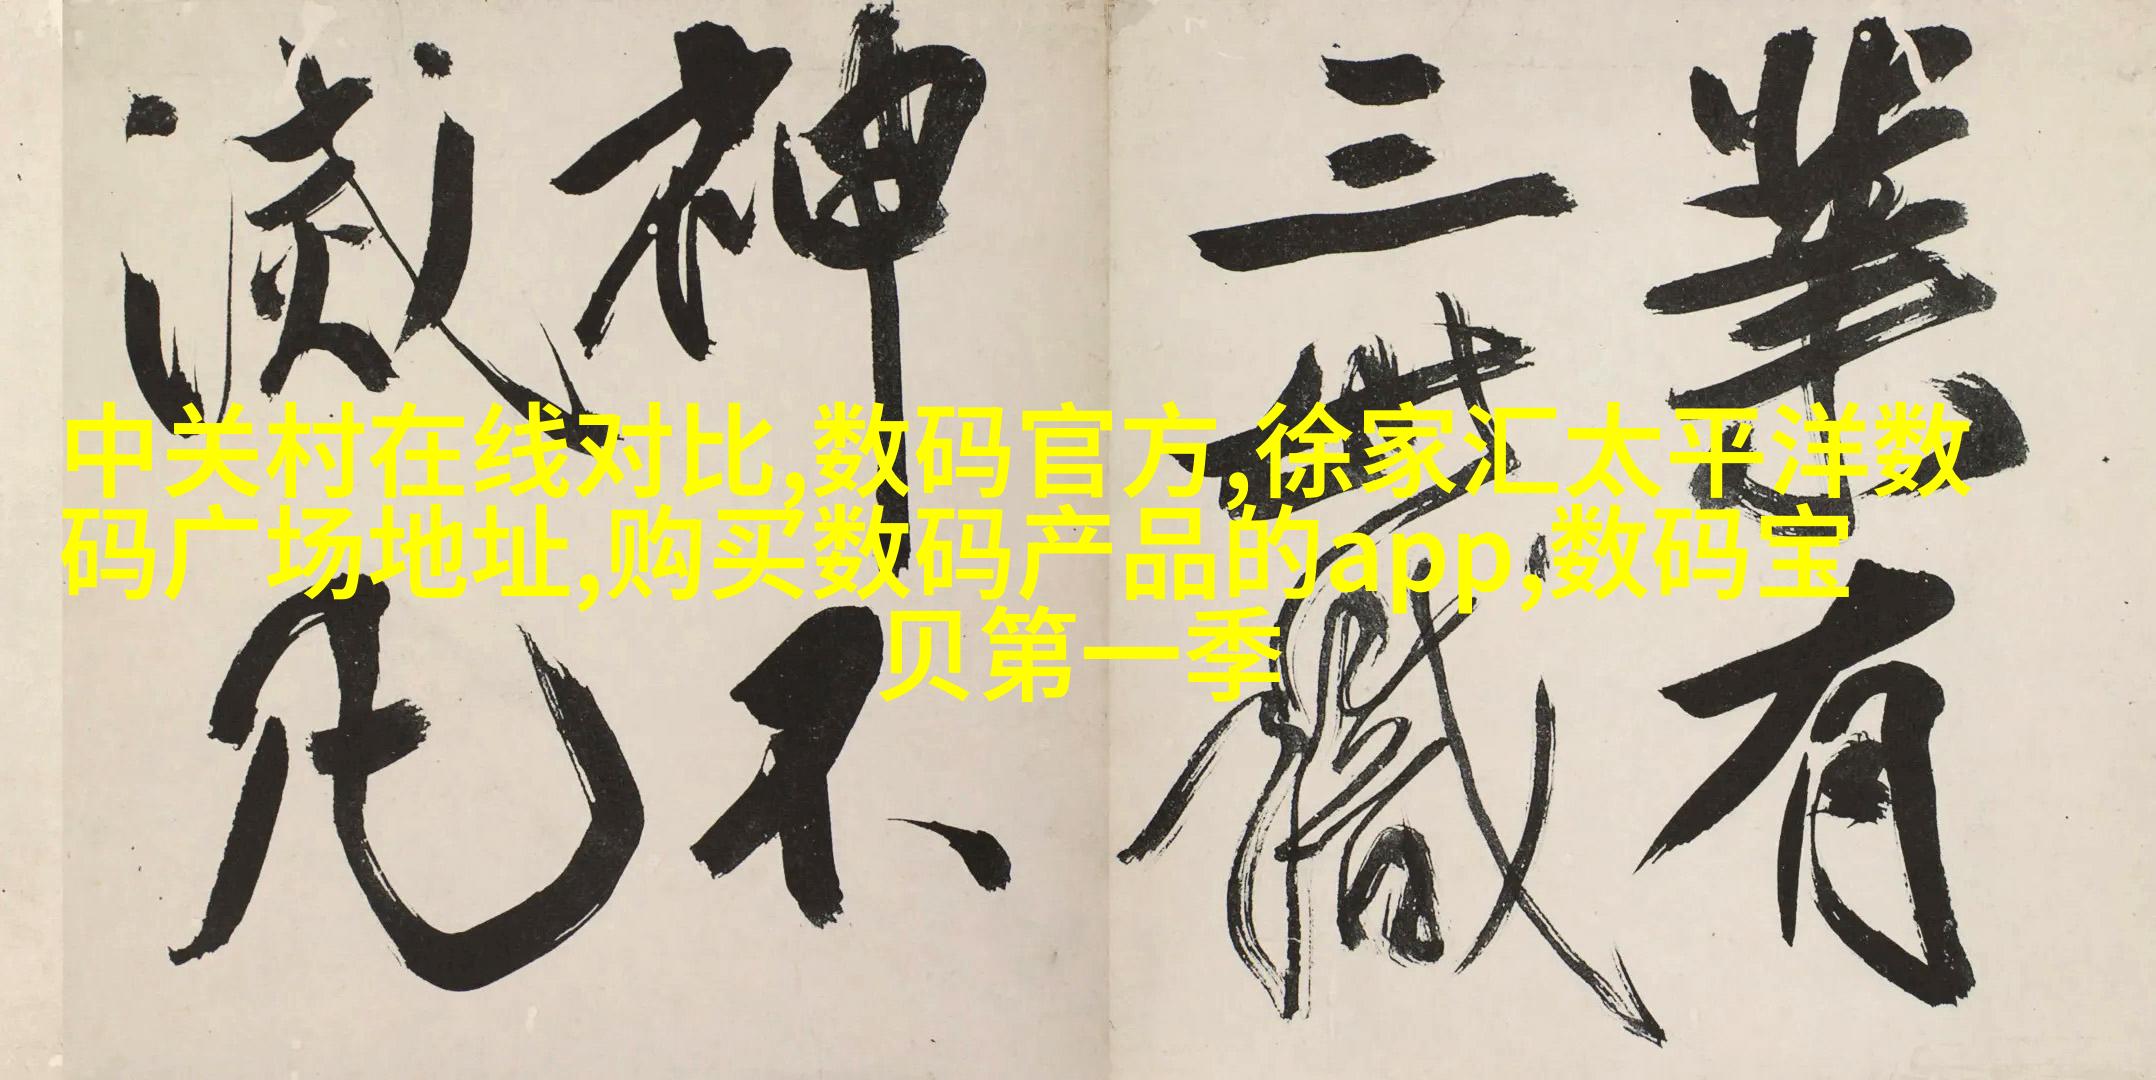 業有
三世職
神不
滅凡
中关村在线对比,数码官方,徐家汇太平洋数
码广场地址,购买数码产品的app,数码宝
贝第一季